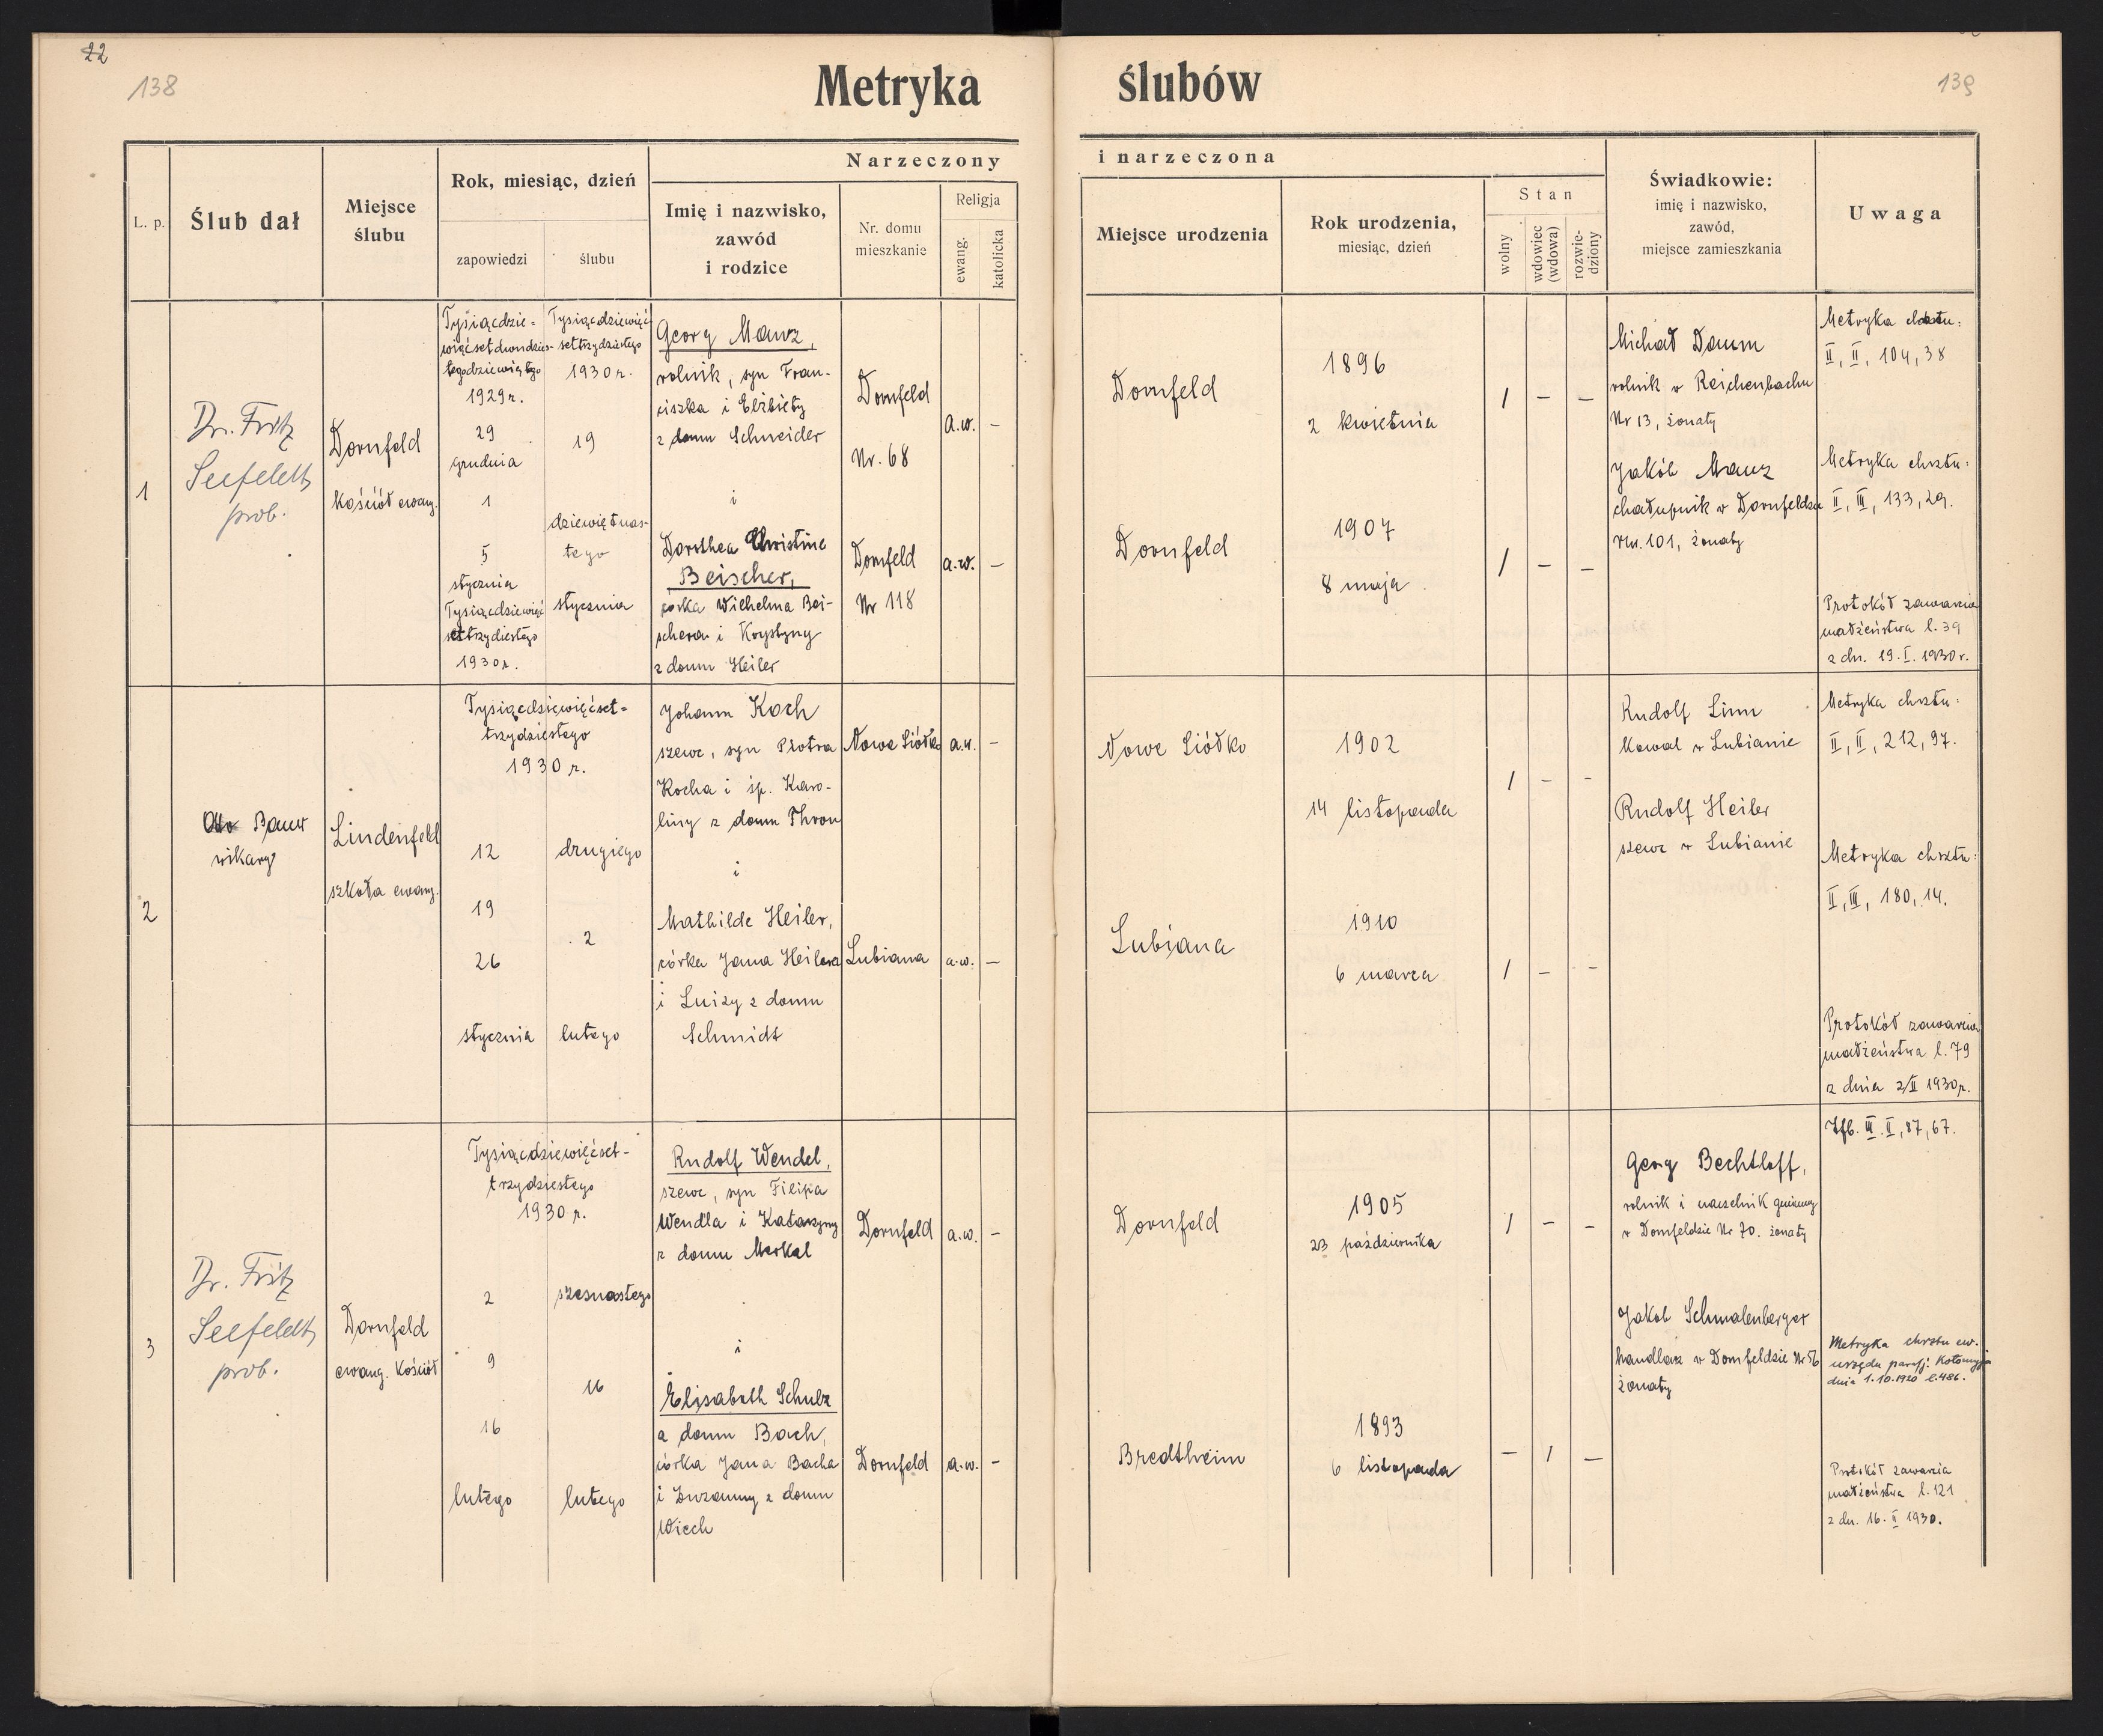 22
138
139
Metryka ślubów
L. p.
Ślub dał
Miejsce
ślubu
Rok, miesiąc, dzień
zapowiedzi
ślubu
Narzeczony
i narzeczona
Imię i nazwisko,
zawód
i rodzice
Nr. domu
mieszkanie
Religja
ewang.
katolicka
Miejsce urodzenia
Rok urodzenia,
miesiąc, dzień
Stan
wolny
wdowiec
(wdowa)
rozwie-
dziony
Świadkowie:
imię i nazwisko,
zawód,
miejsce zamieszkania
Uwaga
1
Dr. Fritz
Seefeldt
prob.
Dornfeld
Kościół ewang.
Tysiącdzie=
więćsetdwudzies-
tegodziewiątego
1929 r.
29
grudnia
1
5
stycznia
Tysiącdziewięć
settrzydziestego
1930 r.
Tysiącdziewięć
settrzydziestego
1930 r.
19
dziewiętnas-
tego
stycznia
Georg Manz,
rolnik, syn Fran-
ciszka i Elżbiety
z domu Schneider
i
Dorothea Christine
Beischer,
córka Wilhelma Bei-
schera i Krystyny
z domu Heiler
Dornfeld
Nr. 68
Dornfeld
Nr 118
a.w. –
a.w. –
Dornfeld
Dornfeld
1896
2 kwietnia
1907
8 maja
1 – –
1 – –
Michał Daum
rolnik w Reichenbachu
Nr 13, żonaty
Jakób Manz
chałupnik w Dornfeldzie
Nr. 101, żonaty
Metryka chrztu:
II, II, 104, 38
Metryka chrztu:
II, III, 133, 29.
Protokół zawarcia
małżeństwa l. 39
z dn. 19. I. 1930 r.
2
Bauer
wikary
Lindenfeld
szkoła ewang.
Tysiącdziewięćset=
trzydziestego
1930 r.
12
19
26
stycznia
drugiego
2
lutego
Johann Koch
szewc, syn Piotra
Kocha i śp. Karo-
liny z domu Thron
i
Mathilde Heiler,
córka Jana Heilera
i Luizy z domu
Schmidt
Nowe Siółko
Lubiana
a.w. –
a.w. –
Nowe Siółko
Lubiana
1902
14 listopada
1910
6 marca
1 – –
1 – –
Rudolf Linn
kowal w Lubianie
Rudolf Heiler
szewc w Lubianie
Metryka chrztu:
II, II, 212, 97.
Metryka chrztu:
II, III, 180, 14.
Protokół zawarcia
małżeństwa l. 79
z dnia 2/II 1930 r.
3
Dr. Fritz
Seefeldt
prob.
Dornfeld
ewang. Kościół
Tysiącdziewięćset-
trzydziestego
1930 r.
2
9
16
lutego
szesnastego
16
lutego
Rudolf Wendel,
szewc, syn Filipa
Wendla i Katarzyny
z domu Merkel
i
Elisabeth Schulz
z domu Bach,
córka Jana Bacha
i Zuzanny z domu
Wiech
Dornfeld
Dornfeld
a.w. –
a.w. –
Dornfeld
Bredtheim
1905
23 października
1893
6 listopada
1 – –
– 1 –
Georg Bechtloff,
rolnik i naczelnik gminny
w Dornfeldzie Nr 70. żonaty
Jakob Schmalenberger
handlarz w Dornfeldzie Nr 56
żonaty
Tfb. III. II, 87, 67.
Metryka chrztu ew.
urzędu paraf. Kołomyja
dnia 1.10.1920 l. 486.
Protokół zawarcia
małżeństwa l. 121
z dn. 16. II 1930.